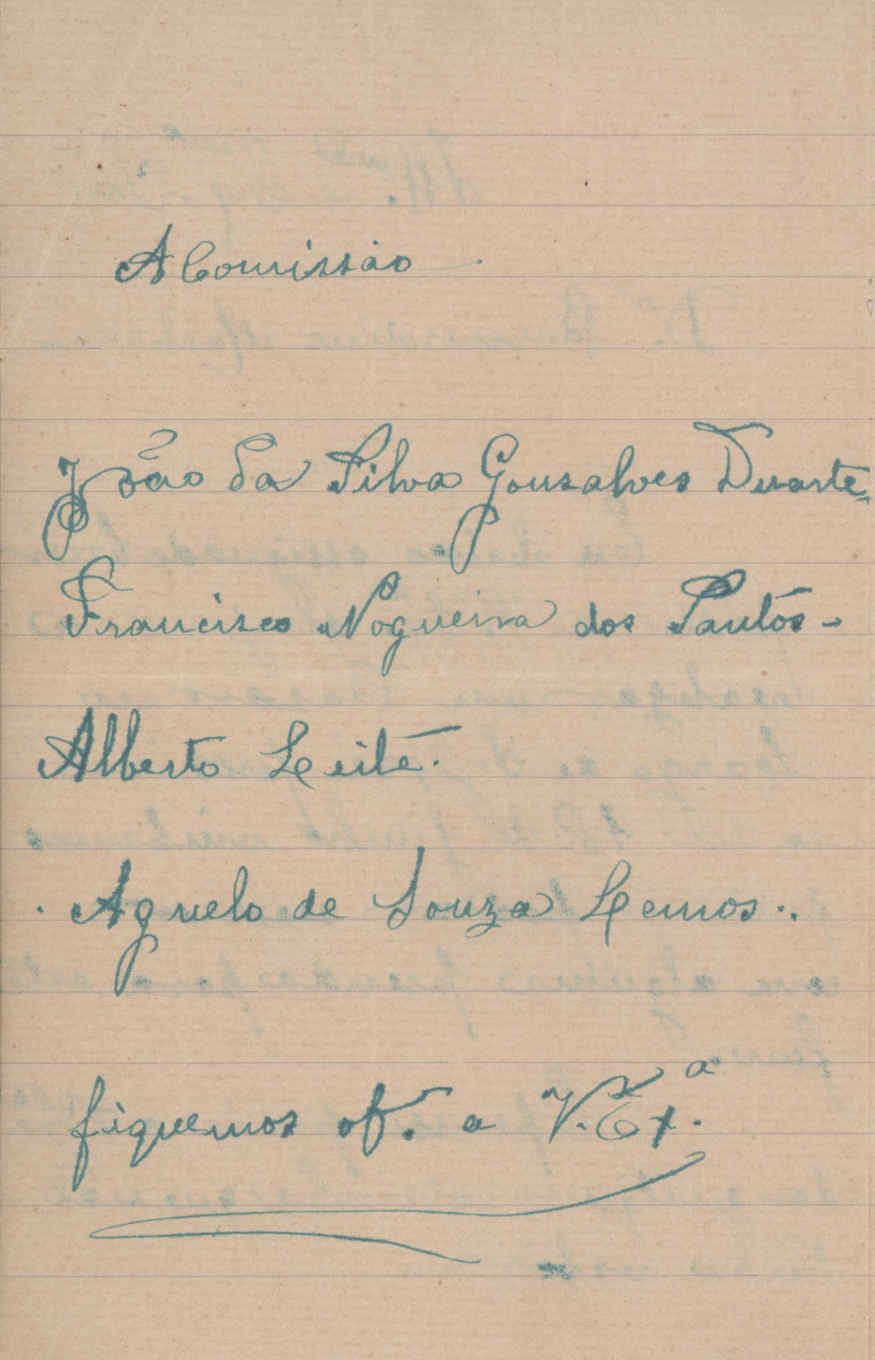 A Comissão.
João da Silva Gonsalves Duarte.
Francisco Nogueira dos Santos.
Alberto Leite.
Agnelo de Souza Lemos.
fiquemos of. a V. Ex.ª